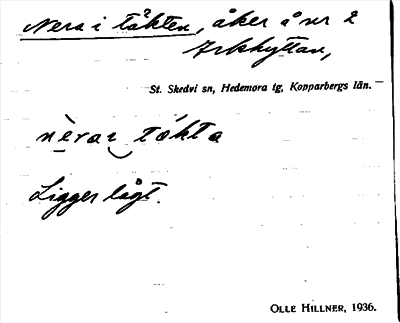 Nera i tåkten, åker å nr 2
Arkhyttan,
St. Skedvi sn, Hedemora tg, Kopparbergs län.
nèrai tákta
Ligger lågt.
OLLE HILLNER, 1936.